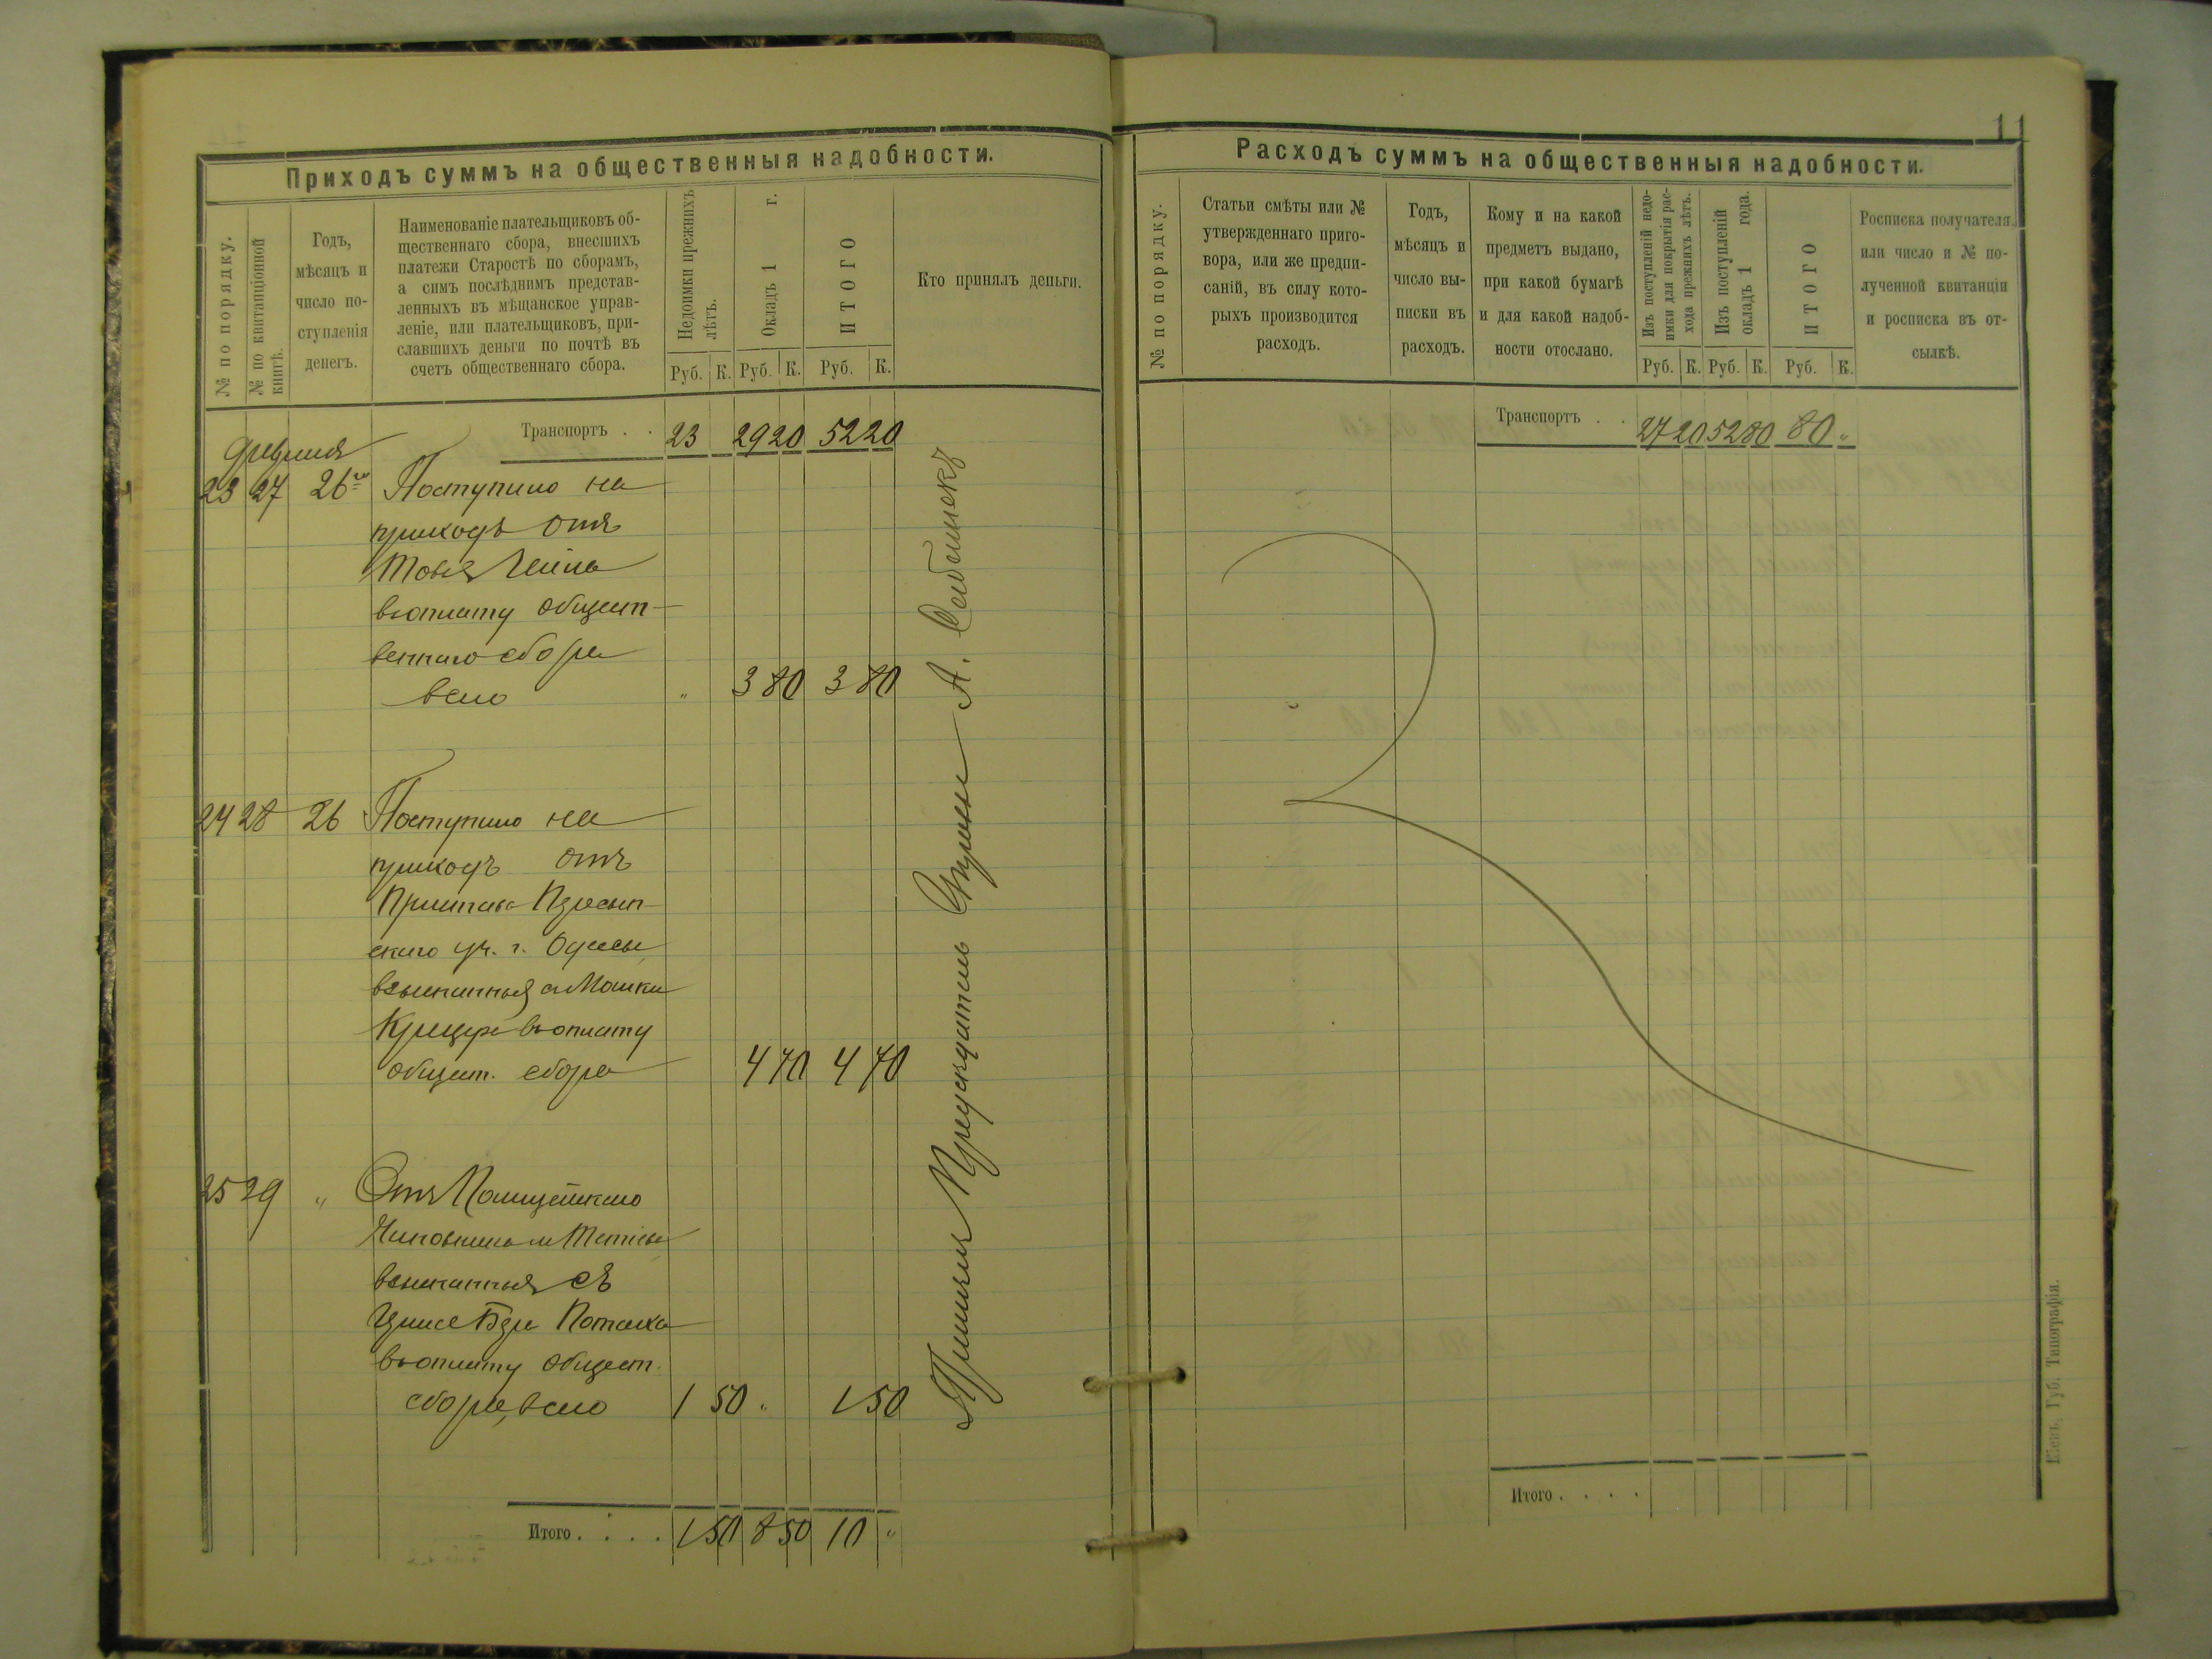 11
Приходъ суммъ на общественныя надобности.
№ по порядку.
№ по квитанціонной
книгѣ.
Годъ,
мѣсяцъ и
число по-
ступленія
денегъ.
Наименованіе плательщиковъ об-
щественнаго сбора, внесшихъ
платежи Старостѣ по сборамъ,
а симъ послѣднимъ представ-
ленныхъ въ мѣщанское управ-
леніе, или плательщиковъ, при-
славшихъ деньги по почтѣ въ
счетъ общественнаго сбора.
Недоимки прежнихъ
лѣтъ.
Окладъ 1 г.
ИТОГО
Кто принялъ деньги.
Руб. К. Руб. К. Руб. К.
Транспортъ . . 23 29 20 52 20
23 27 26го Поступило на
приходъ отъ
въ оплату общест-
веннаго сбора
всего " 3 80 3 80
24 28 26 Поступило на
приходъ отъ
Пристава Пересып-
скаго уч. г. Одессы
взысканныя съ Мошки
въ оплату
общест. сбора 4 70 4 70
25 29 " Отъ Полицейскаго
Чиновника м
взысканныя съ
въ оплату общест.
сбора, всего 1 50 " 1 50
Итого . . . . 1 50 8 50 10 "
Принялъ Предсѣдатель Управы А.
Расходъ суммъ на общественныя надобности.
№ по порядку.
Статьи смѣты или №
утвержденнаго приго-
вора, или же предпи-
саній, въ силу кото-
рыхъ производится
расходъ.
Годъ,
мѣсяцъ и
число вы-
писки въ
расходъ.
Кому и на какой
предметъ выдано,
при какой бумагѣ
и для какой надоб-
ности отослано.
Изъ поступленій недо-
имки для покрытія рас-
хода прежнихъ лѣтъ.
Изъ поступленій
окладъ 1 года.
ИТОГО
Росписка получателя
или число и № по-
лученной квитанціи
и росписка въ от-
сылкѣ.
Руб. К. Руб. К. Руб. К.
Транспортъ . . 27 20 52 80 80 "
Итого . . . .
Кіевъ, Губ. Типографія.